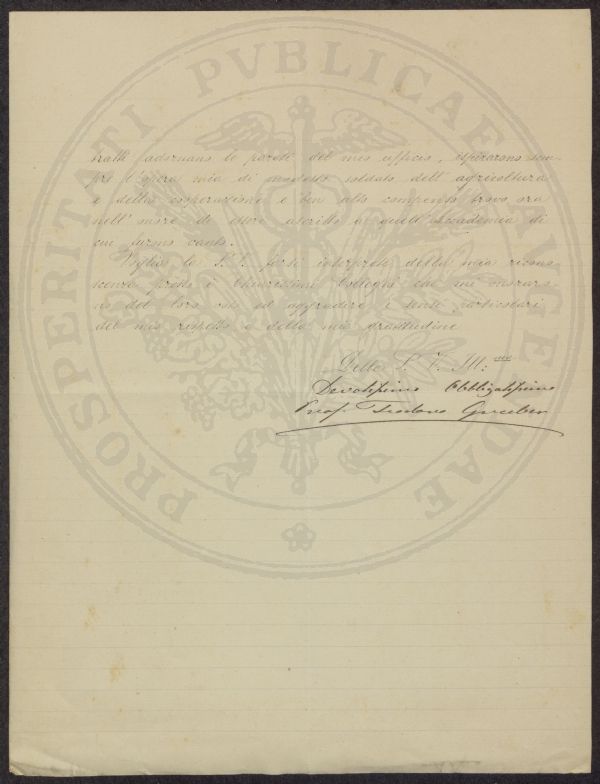 PROSPERITATI PVBLICAE AVGENDAE
tratti adornano le pareti del mio ufficio, ispirarono sem-
pre l'opera mia di modesto soldato dell'agricoltura
e della cooperazione e ben alto compenso trovo ora
nell'onore di essere ascritto a quell'Accademia di
cui furono vanto.
Voglia la S.V. farsi interprete della mia ricono-
scenza presso i Chiarissimi Colleghi che mi onoraro-
no del loro voto ed aggradire i sensi particolari
del mio rispetto e della mia gratitudine
Della S. V. Ill:
Devotissimo Obbligatissimo
Prof. Teodoro